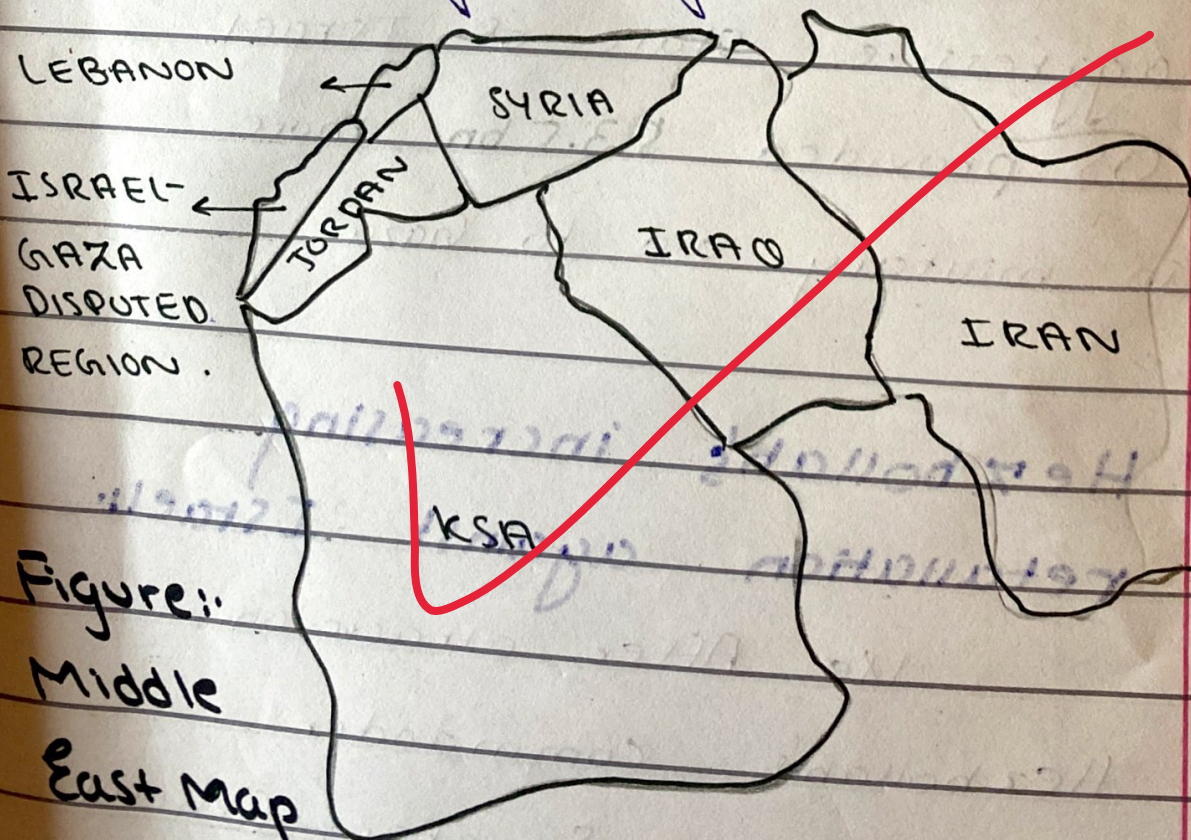 LEBANON
SYRIA
ISRAEL-
GAZA
DISPUTED
REGION.
JORDAN
IRAQ
IRAN
KSA
Figure:
Middle
East Map